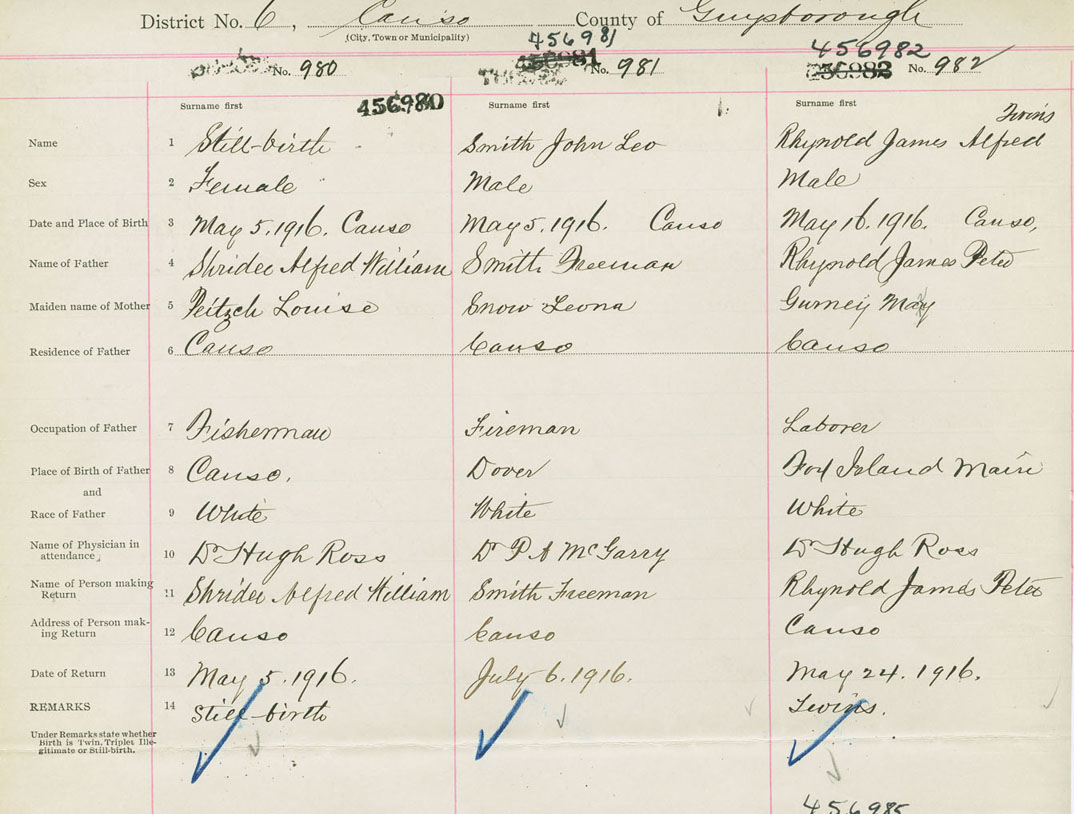 District No. 6, Canso County of Guysborough
(City, Town or Municipality)
456981 456982
No. 980 456981 No. 981 456982 No. 982
Surname first 456980 Surname first Surname first
Twins
Name 1 Still-birth Smith John Leo Rhynold James Alfred
Sex 2 Female Male Male
Date and Place of Birth 3 May 5, 1916. Canso May 5. 1916. Canso May 16. 1916. Canso,
Name of Father 4 Alfred William Smith Freeman Rhynold James Peter
Maiden name of Mother 5 Louise Snow Leona Gurney May
Residence of Father 6 Canso Canso Canso
Occupation of Father 7 Fisherman Fireman Laborer
Place of Birth of Father 8 Canso. Dover Fox Island Main
and
Race of Father 9 White White White
Name of Physician in
attendance, 10 Dr Hugh Ross Dr P A McGarry Dr Hugh Ross
Name of Person making
Return 11 Alfred William Smith Freeman Rhynold James Peter
Address of Person mak-
ing Return 12 Canso Canso Canso
Date of Return 13 May 5. 1916. July 6. 1916. May 24. 1916.
REMARKS 14 Still-birth Twins.
Under Remarks state whether
Birth is Twin, Triplet Ille-
gitimate or Still-birth.
456985